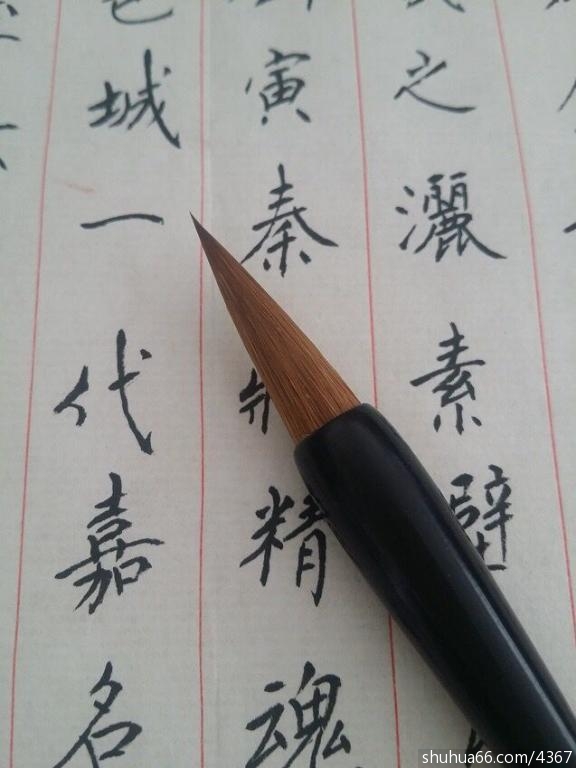 之灑素壁
寅秦精魂
城一代嘉名
shuhua66.com/4367